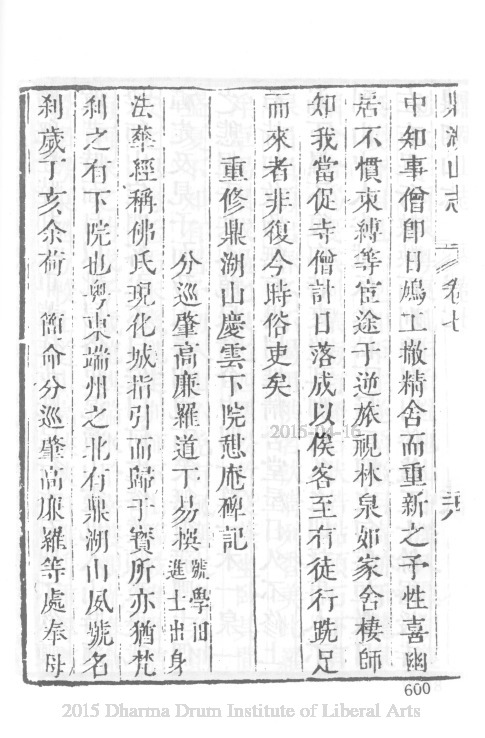 鼎湖山志 卷七
中知事僧卽日鳩工撤精舍而重新之予性喜幽
居不慣束縛等宦途于逆旅視林泉如家舍棲師
知我當促寺僧計日落成以俟客至有徒行跣足
而來者非復今時俗吏矣
重修鼎湖山慶雲下院憇庵碑記
分巡肇高廉羅道丁易撰 號學田進士出身
法華經稱佛氏現化城指引而歸于寶所亦猶梵
刹之有下院也粤東端州之北有鼎湖山夙號名
刹歲丁亥余荷 簡命分巡肇高廉羅等處奉母
600
2015-04-16
2015 Dharma Drum Institute of Liberal Arts